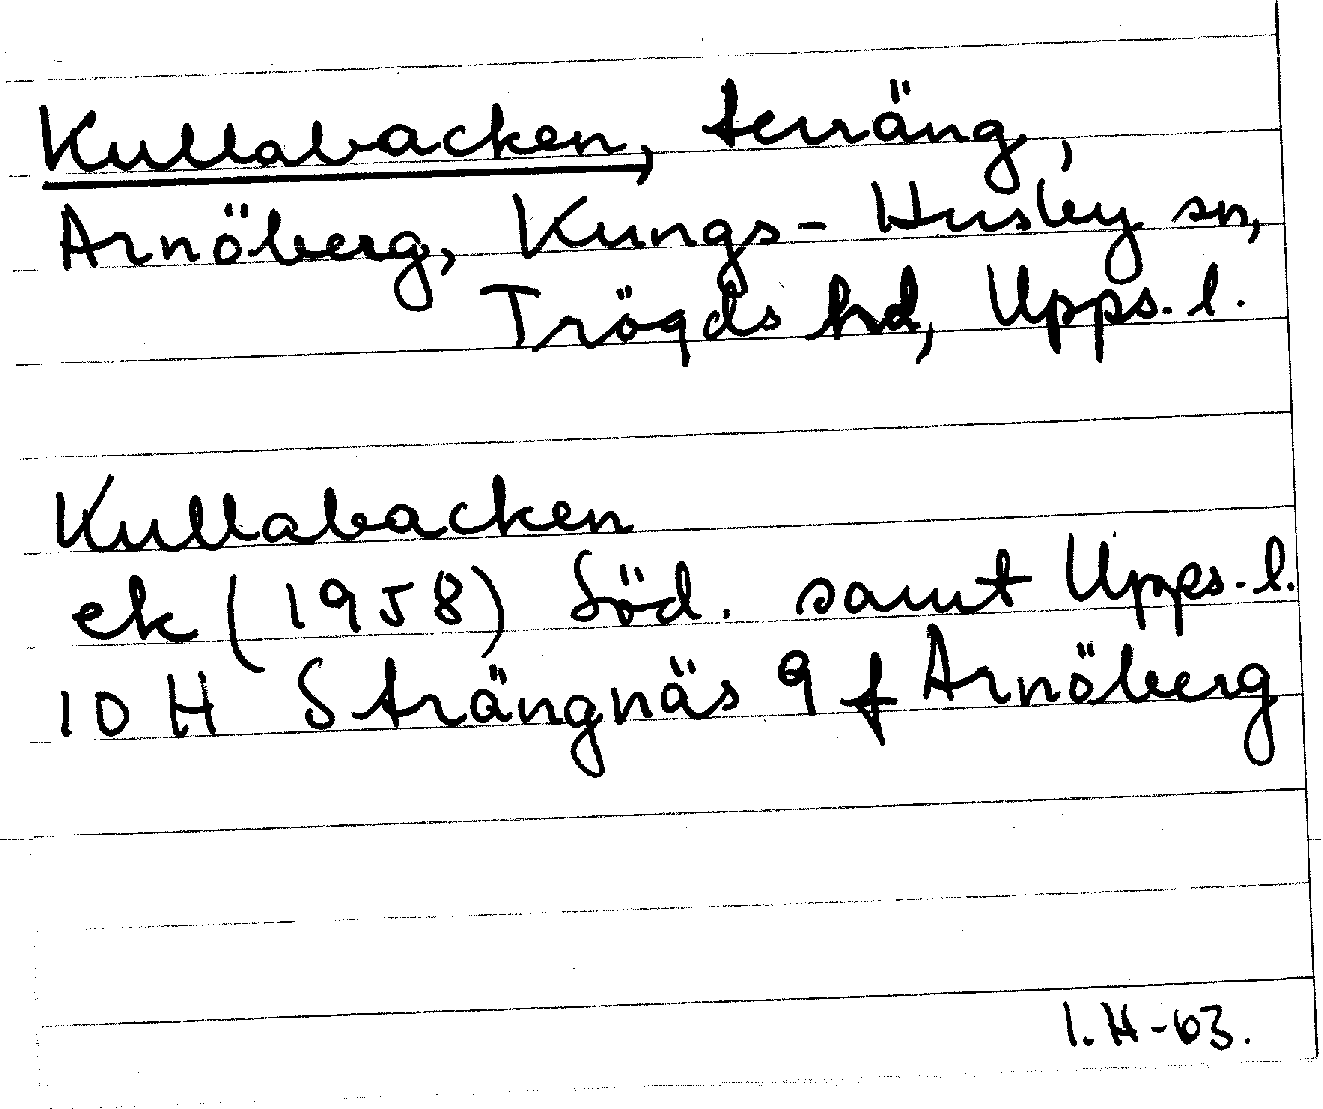 Kullabacken, terräng,
Arnöberg, Kungs-Husby sn,
Trögds hd, Upps. l.
Kullabacken
ek (1958) Söd. samt Upps-l.
10 H Strängnäs 9 f Arnöberg
I. H-63.